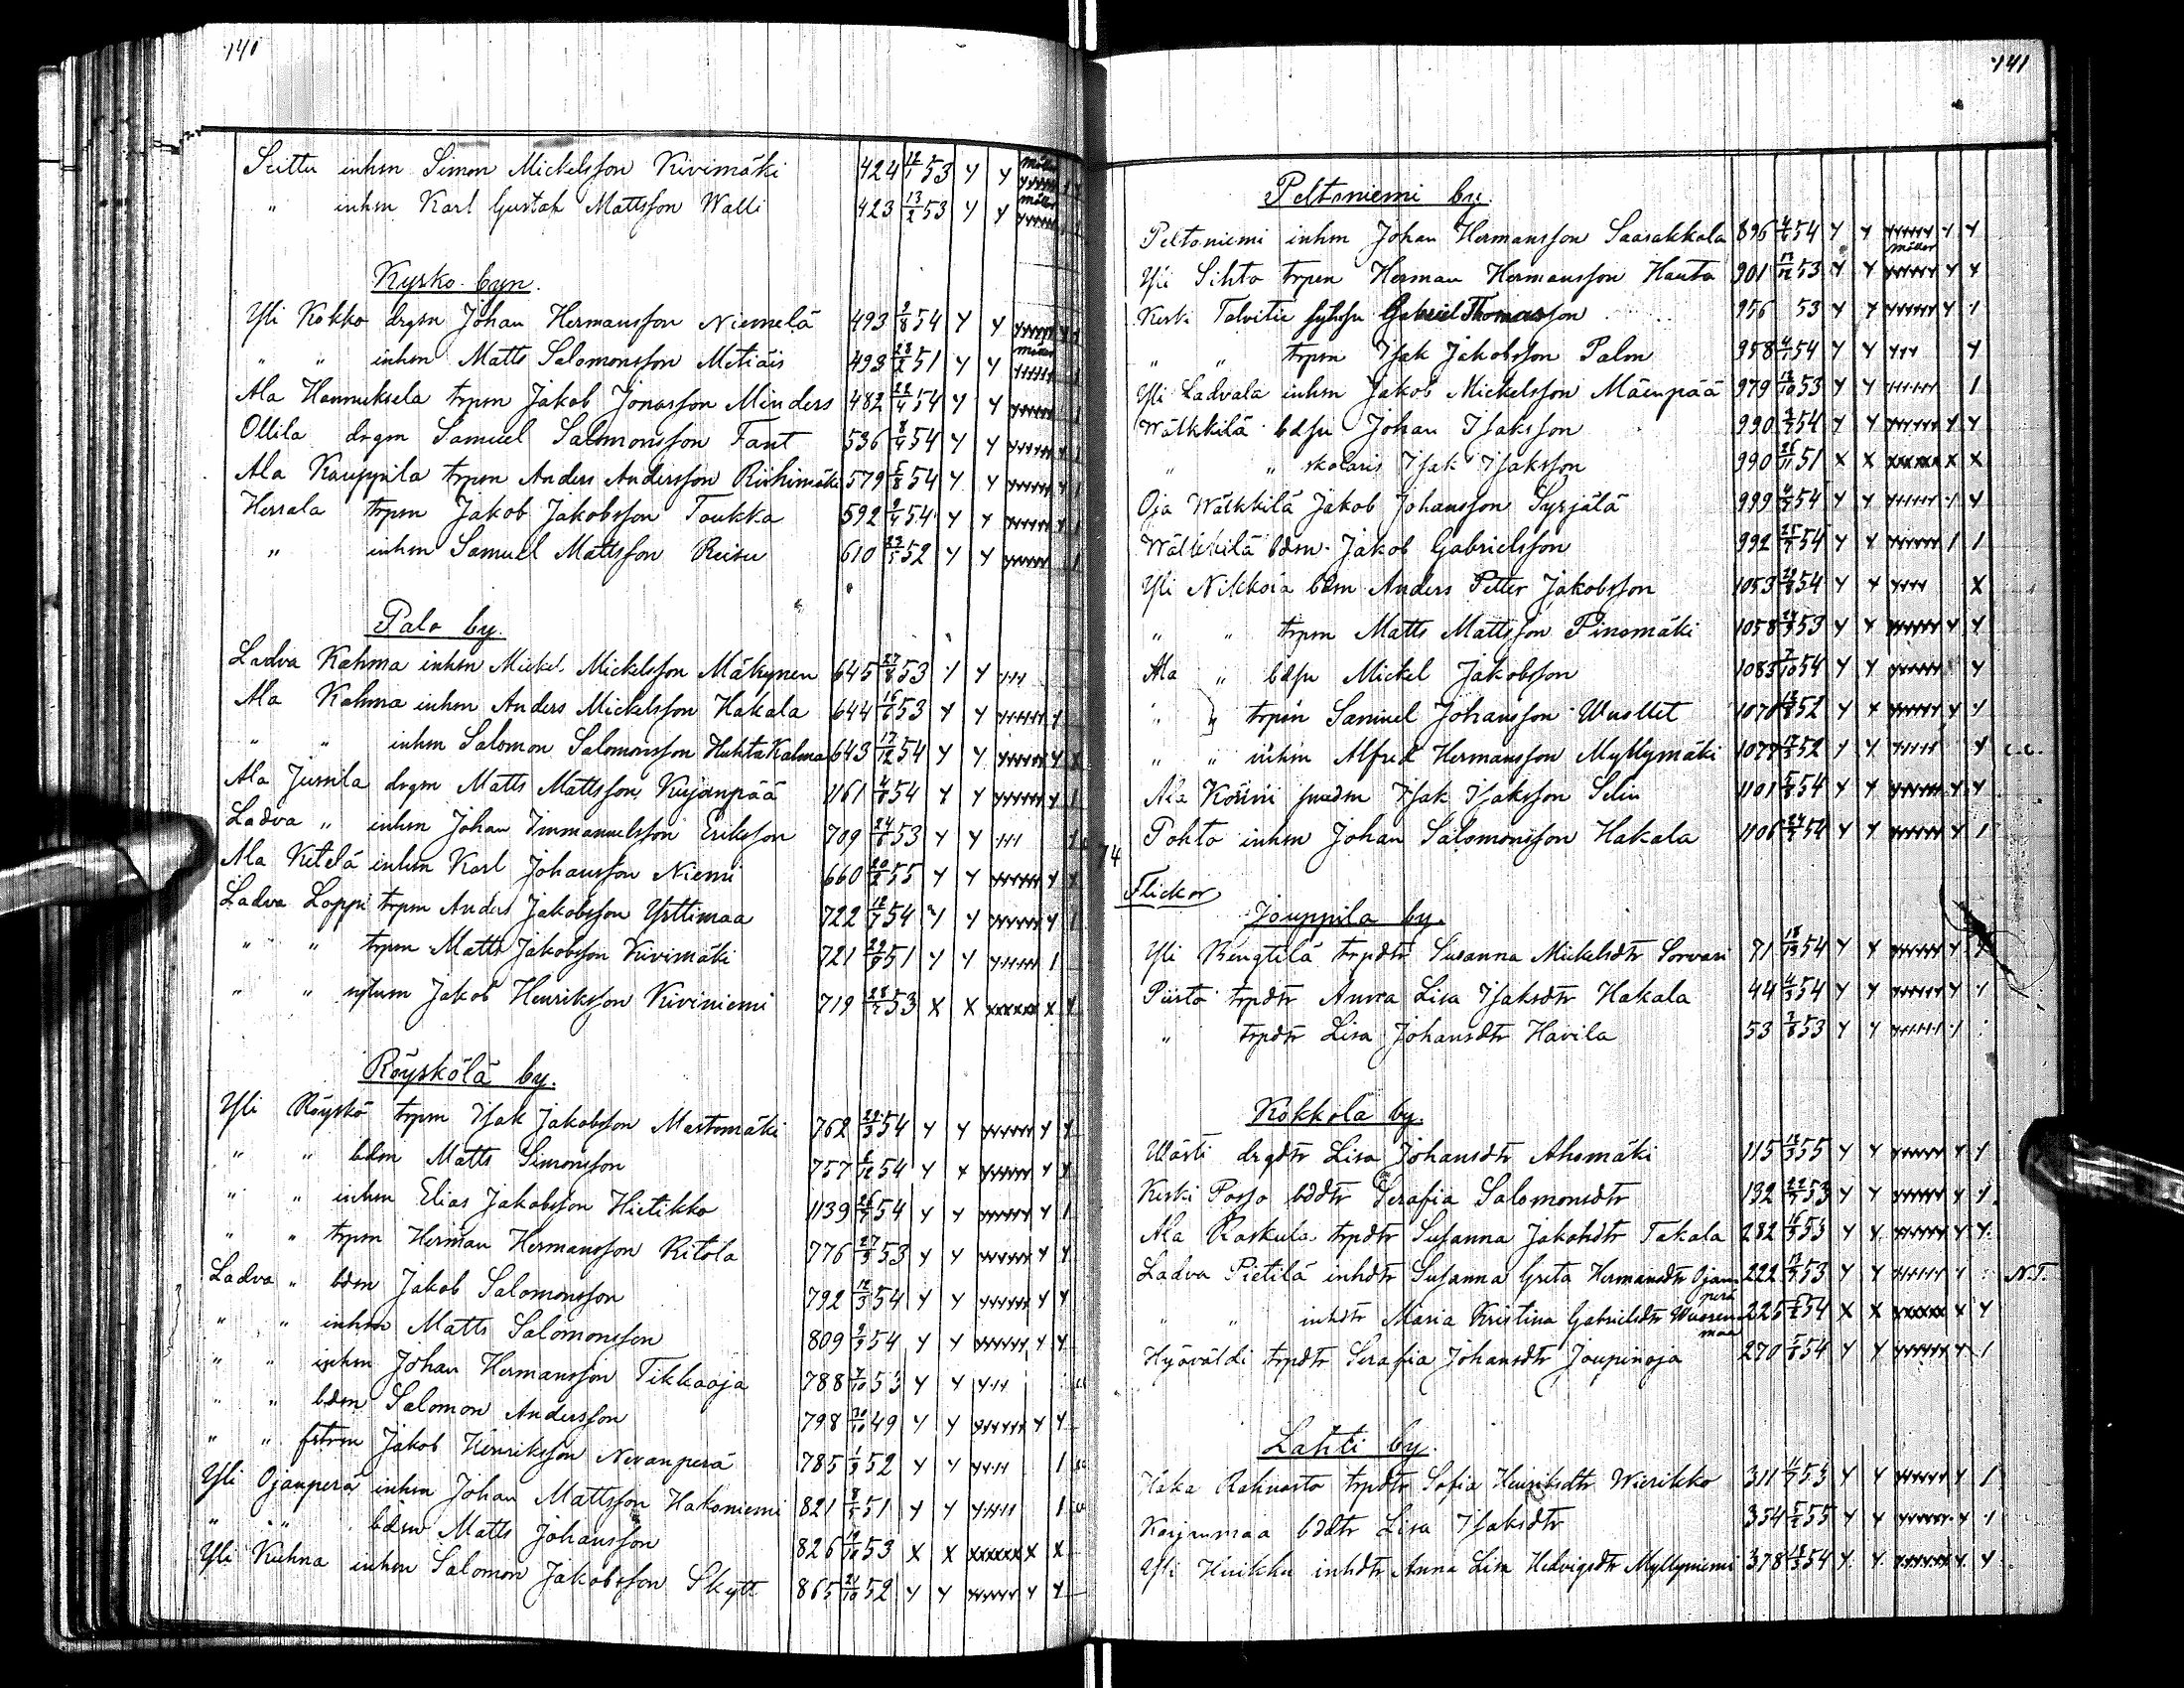 140
Seittu inhsn Simon Mickelsson Kivimäki 424 12/1 53 y y
" inhsn Karl Gustaf Mattsson Walli 423 13/2 53 y y
Kysko byn.
Yli Kokko drgsn Johan Hermansson Niemelä 493 2/8 54 y y
" " inhsn Matts Salomonsson Metiäis 493 23/2 51 y y
Ala Hannuksela trpsn Jakob Jonasson Minders 482 22/4 54 y y
Ollila drgsn Samuel Salomonsson Fant 536 8/4 54 y y
Ala Kauppila trpsn Anders Andersson Riihimäki 579 5/8 54 y y
Herrala trpsn Jakob Jakobsson Toukka 592 2/4 54 y y
" inhsn Samuel Mattsson Reisu 610 52 y y
Palo by.
Ladva Kahma inhsn Mickel Mickelsson Mäkynen 645 27/8 53 y y
Ala Kahma inhsn Anders Mickelsson Hakala 644 16/6 53 y y
" " inhsn Salomon Salomonsson HuhtaKahma 643 17/12 54 y y
Ala Jussila drgsn Matts Mattsson Kujanpää 1161 4/8 54 y y
Ladva " inhsn Johan Immanuelsson Eriksson 709 24/6 53 y y
Ala Ketelä inhsn Karl Johansson Niemi 660 20/2 55 y y
Ladva Loppi trpsn Anders Jakobsson Yrttimaa 722 12/7 54 y y
" " trpsn Matts Jakobsson Kivimäki 721 22/9 51 y y
" " Jakob Henriksson Kiviniemi 719 28/2 53 x x
Röyskölä by.
Yli Röyskö trpsn Isak Jakobsson Mastomäki 762 29/3 54 y y
" " bdsn Matts Simonsson 757 6/12 54 y y
" " inhsn Elias Jakobsson Hietikko 1139 26/7 54 y y
" " trpsn Herman Hermansson Ritola 776 27/3 53 y y
Ladva " bdsn Jakob Salomonsson 792 12/3 54 y y
" " inhsn Matts Salomonsson 809 2/3 54 y y
" " inhsn Johan Hermansson Tikkaoja 788 7/10 53 y y
" " bdsn Salomon Andersson 798 30/10 49 y y
" " Jakob Henriksson Nevanperä 785 1/9 52 y y
Yli Ojanperä inhsn Johan Mattsson Hakoniemi 821 51 y y
" " bdsn Matts Johansson 826 19/10 53 x x
Yli Kuhna inhsn Salomon Jakobsson Skytt 865 21/10 52 y y
141
Peltoniemi by.
Peltoniemi inhsn Johan Hermansson Saarakkala 896 54 y y
Yli Sihto trpsn Herman Hermansson Hauta 901 17/12 53 y y
Keski Talvitie Gabriel Thomasson 956 53 y y
" " trpsn Isak Jakobsson Palon 958 54 y y
Yli Ladvala inhsn Jakob Mickelsson Mäenpää 979 13/10 53 y y
Wälkkilä bdsn Johan Isaksson 990 54 y y
" " skolaris Isak Isaksson 990 26/11 51 x x
Oja Wälkkilä Jakob Johansson Syrjälä 999 54 y y
Wälkkilä bdsn Jakob Gabrielsson 992 54 y y
Yli Nikkola bdsn Anders Petter Jakobsson 1053 54 y y
" " trpsn Matts Mattsson Pinomäki 1058 53 y y
Ala " bdsn Mickel Jakobsson 1083 7/10 54 y y
" " trpsn Samuel Johansson Wuollet 1070 52 y y
" " inhsn Alfred Hermansson Myllymäki 1077 52 y y
Ala Könni Isak Isaksson Selin 1101 54 y y
Pohto inhsn Johan Salomonsson Hakala 1106 54 y y
74
Flickor
Jouppila by.
Yli Rengtilä trpdtr Susanna Mickelsdtr Sorvari 71 18/12 54 y y
Piirto trpdtr Anna Lisa Isaksdtr Hakala 44 54 y y
" trpdtr Lisa Johansdtr Havila 53 53 y y
Kokkola by.
Wästi drgdtr Lisa Johansdtr Ahomäki 115 55 y y
Keski Posso bddtr Serafia Salomonsdtr 132 53 y y
Ala Raskula trpdtr Susanna Jakobsdtr Takala 282 53 y y
Ladva Pietilä inhdtr Susanna Greta Hermansdtr Ojanperä 222 53 y y N.T.
" " inhdtr Maria Kristina Gabrielsdtr Wuorenmaa 225 54 x x
Hyöväldi trpdtr Serafia Johansdtr Joupinoja 270 54 y y
Lahti by.
Haka Rahnasto trpdtr Sofia Henriksdtr Wierikko 311 53 y y
Korjunmaa bddtr Lisa Isaksdtr 354 55 y y
Yli Hirikku inhdtr Anna Lisa Hedvigsdtr Myllyniemi 378 54 y y